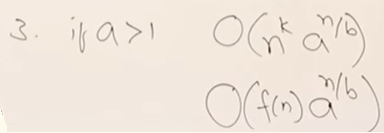 3. if a>1 O(n^k a^{n/b})
O(f(n) a^{n/b})